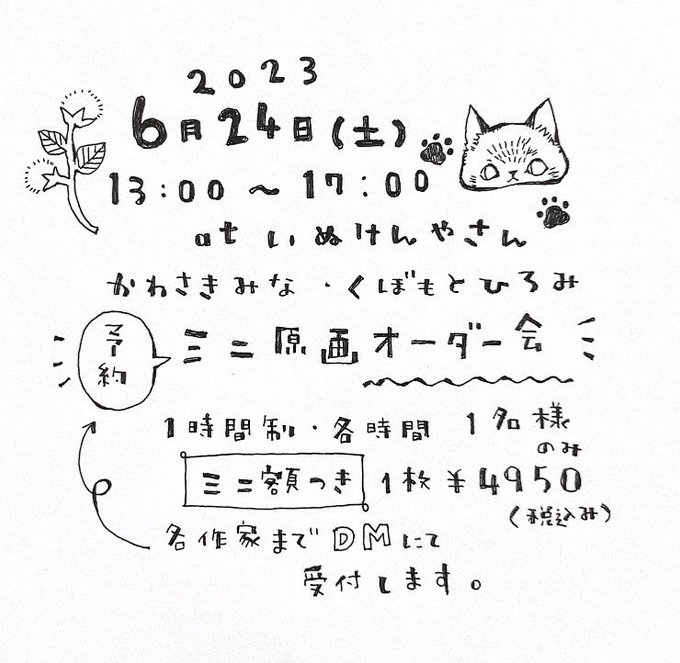 2023
6月24日(土)
13:00 〜 17:00
at いぬけんやさん
かわさきみな・くぼもとひろみ
予約
ミニ原画オーダー会
1時間制・各時間 1名様
のみ
ミニ額つき 1枚 ¥4950
(税込み)
各作家まで DMにて
受付します。